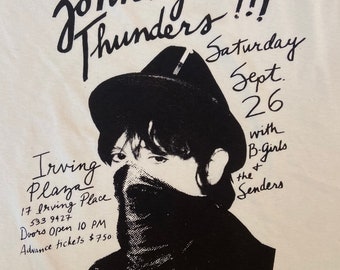 Thunders!!!
Saturday
Sept.
26
with
B-Girls
+
the
Senders
Irving
Plaza
17 Irving Place
533 9427
Doors Open 10 PM
Advance tickets $7.50